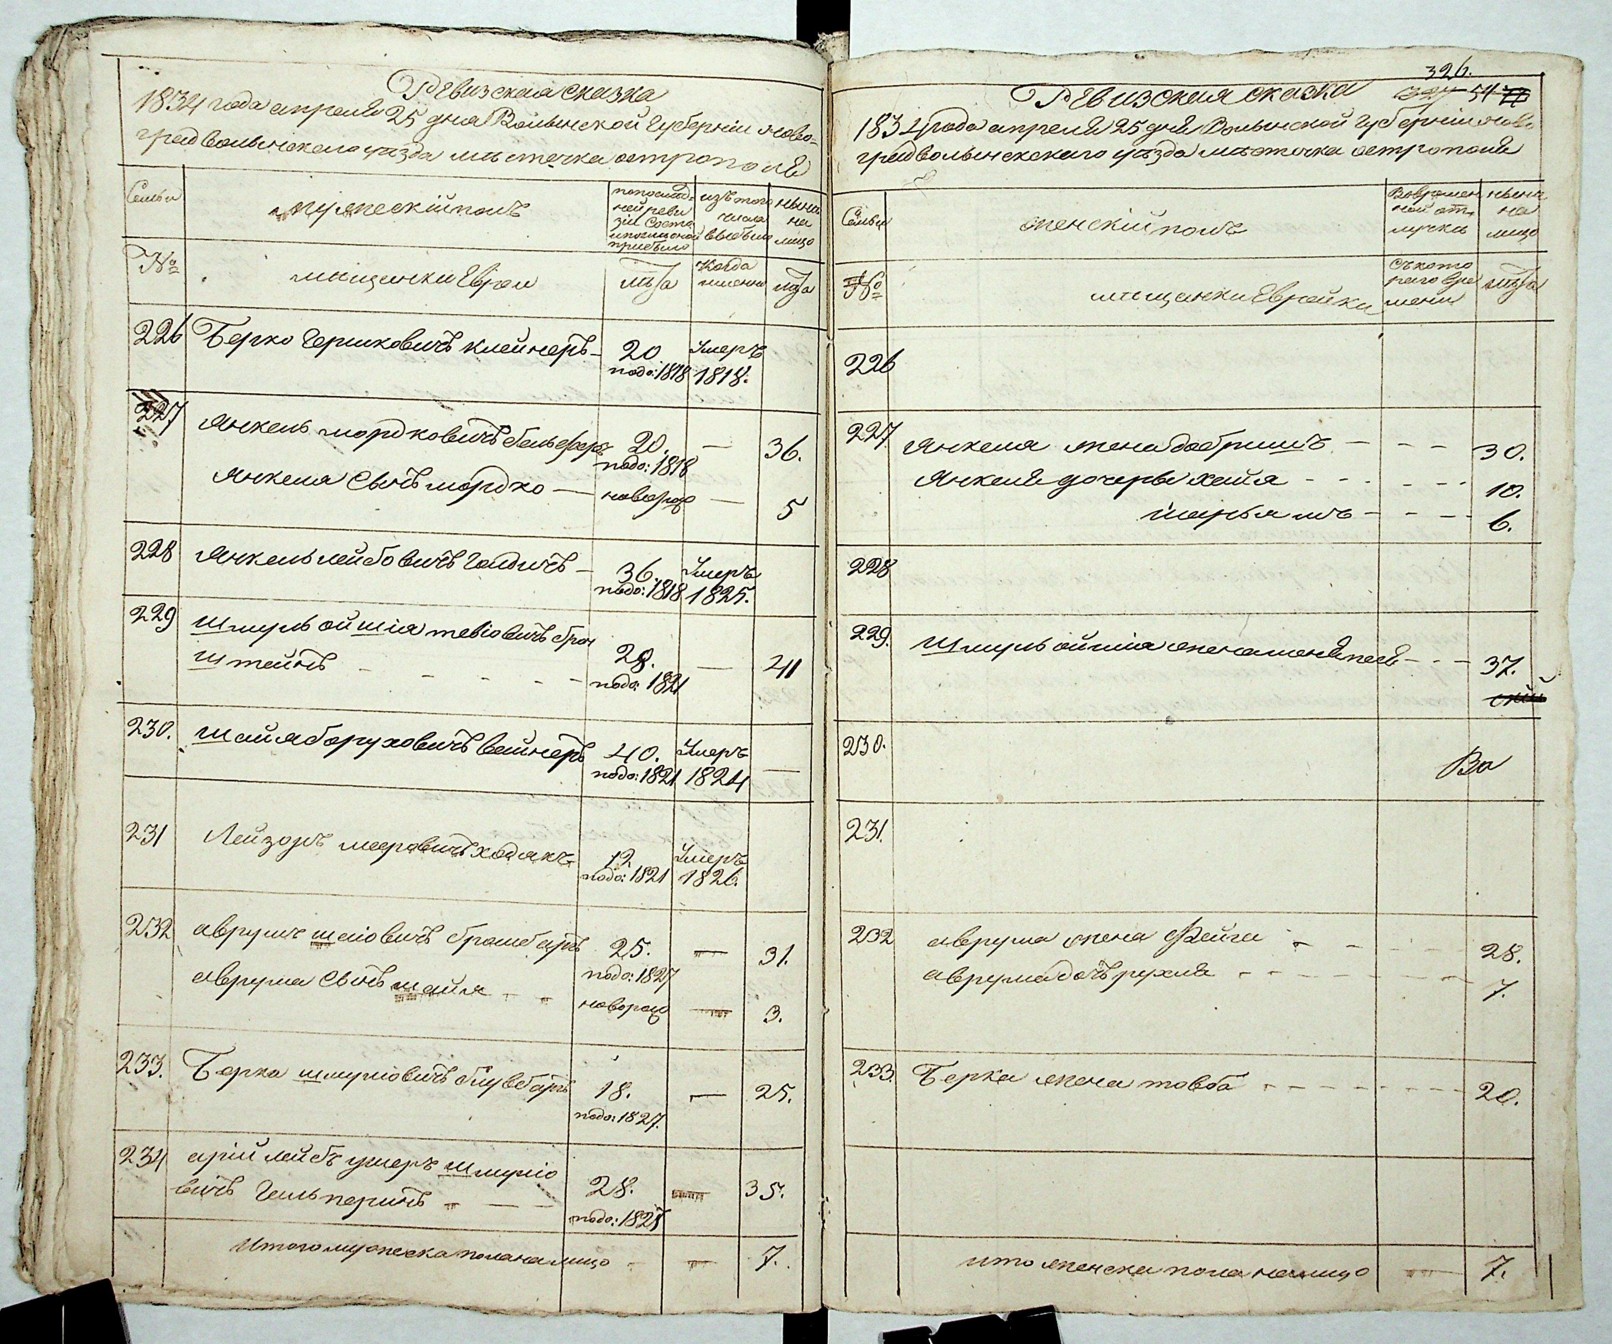 Ревизская сказка
1834 года апреля 25 дня Волынской Губернии Ново-
градволынского уезда местечка острополя
Семьи
мужеский полъ
по последней ревизии состояло и после оной прибыло
изъ того числа выбыло
ныне на лицо
№
мещанки Евреи
лѣта
Когда именно
лѣта
226 Берко Гершковичъ клейнеръ 20 Умеръ
подо: 1818 1818.
227 Янкель мордковичъ бельферъ 20. — 36.
подо: 1818
Янкеля Сынъ мордко — новорож — 5
228 Янкель лейбовичъ 36. Умеръ
подо: 1818 1825.
229 Шмуль ойшія тевіовичъ брон
штейнъ 28. — 41
подо: 1821
230. шаия боруховичъ вайнеръ 40. Умеръ —
подо: 1821 1824
231 Лейзоръ мееровичъ ходакъ 12. Умеръ
подо: 1821 1826.
232 аврумъ шаіовичъ 25. — 31.
подо: 1827
аврума Сынъ шаия новорож — 3.
233. Берка шмуліовичъ 18. — 25.
подо: 1827.
234 арій лейбъ ушеръ шмуліо
вичъ Гальперинъ 28. 35.
подо: 1828
Итого мужеска пола на лицо — 7.
326.
54
Ревизская сказка
1834 года апреля 25 дня Волынской Губернии Ново-
градволынскаго уезда местечка острополя
Семьи
женскій полъ
Вовремен
ной от
лучки
ныне
на
лицо
№
мещанки Еврейки
Съ кото
раго вре
мени
лѣта
226
227. Янкеля жена добришъ — — — 30.
Янкеля дочеры хайя 10.
6.
228
229. Шмуль ойшія жена 37.
230.
Ва
231.
232 аврума жена Фейга 28.
аврума дочь рухля 7.
233. Берка жена товба 20.
итого женска пола на лицо 7.